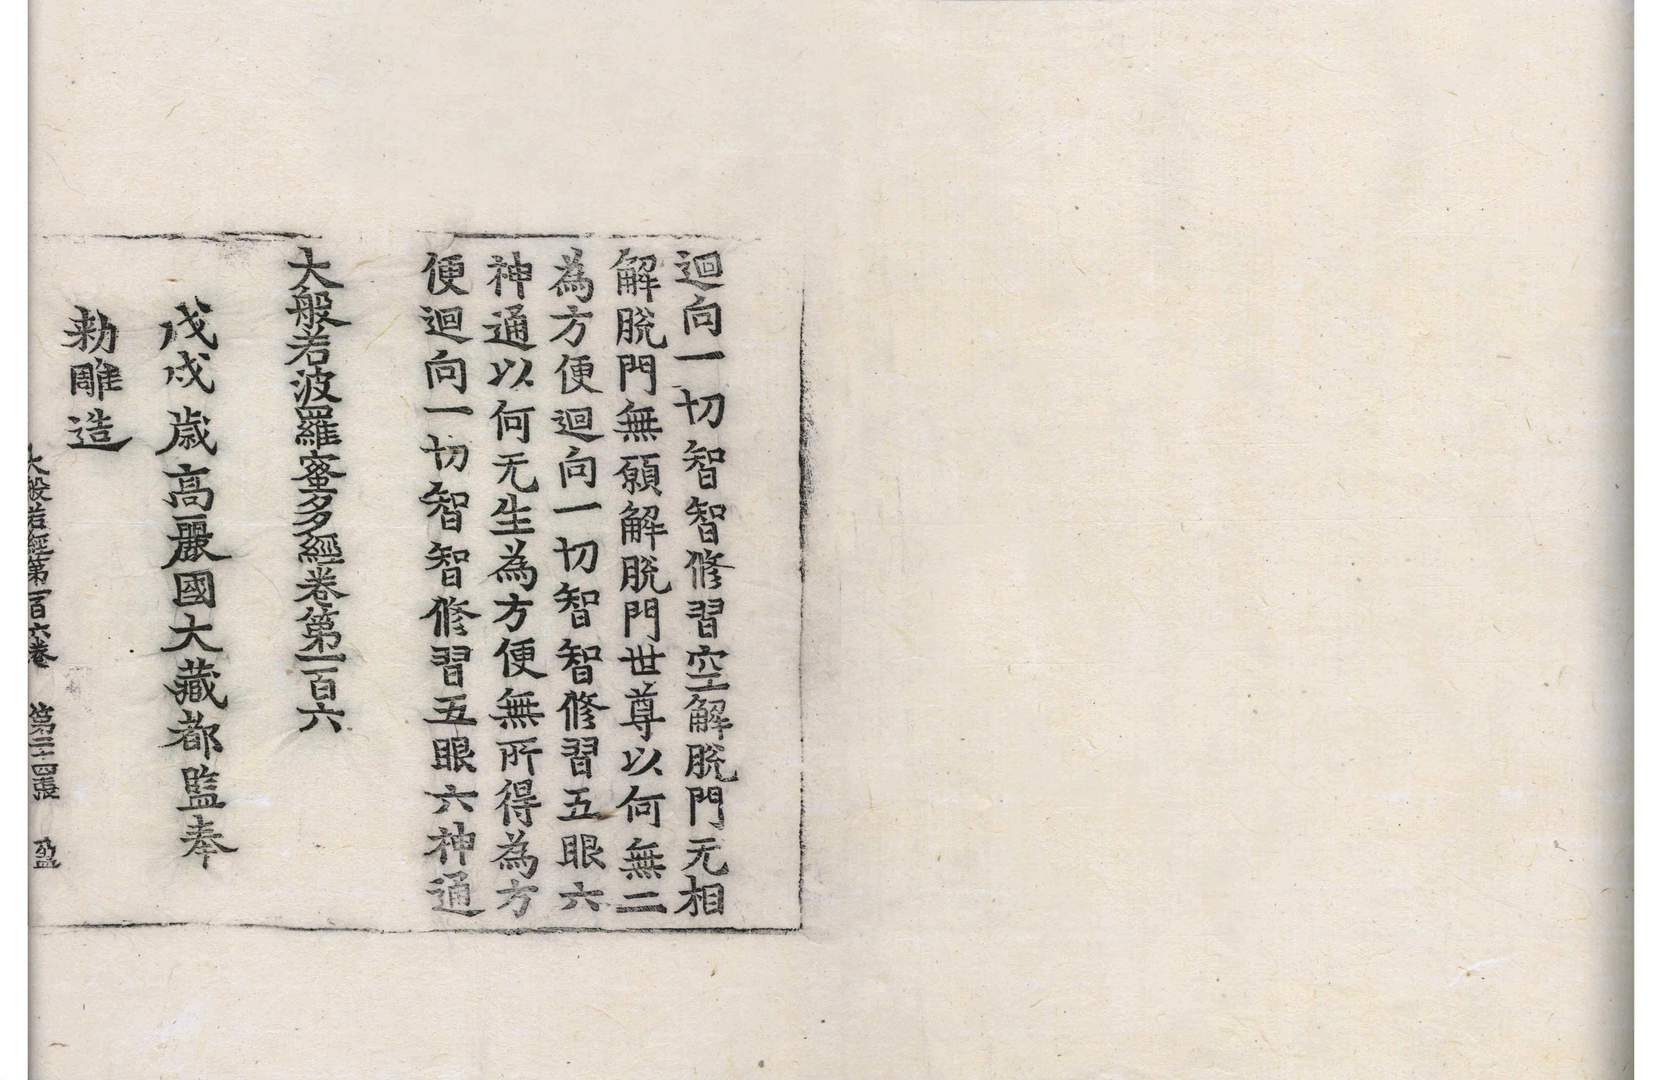 迴向一切智智修習空解脫門无相
解脫門無願解脫門世尊以何無二
為方便迴向一切智智修習五眼六
神通以何无生為方便無所得為方
便迴向一切智智修習五眼六神通
大般若波羅蜜多經卷第一百六
戊戌歲高麗國大藏都監奉
勅雕造
大般若經第一百六卷 第二十四張 盈